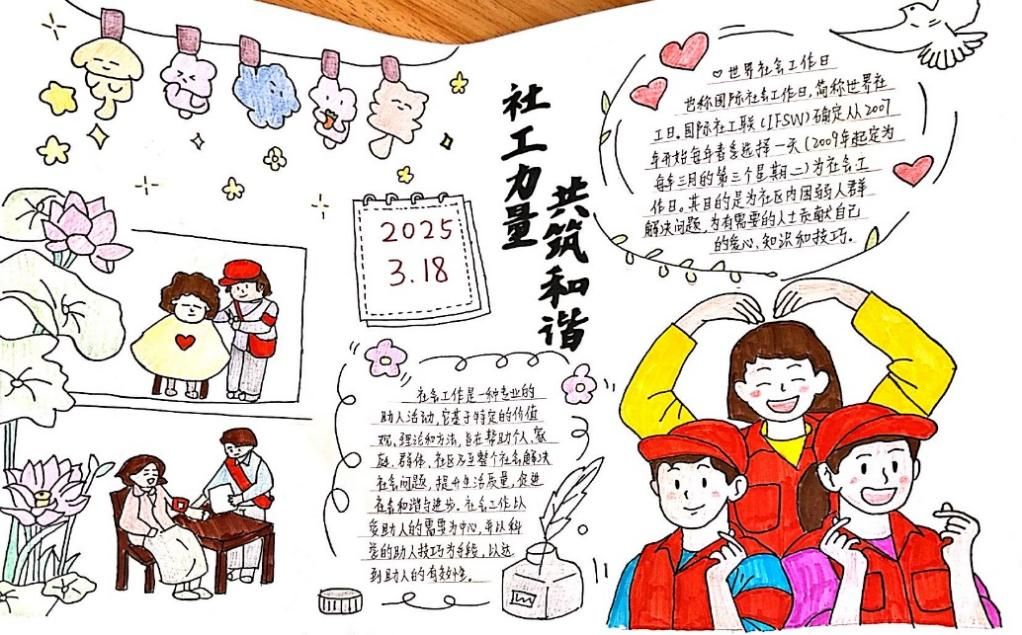 社工力量
共筑和谐
2025
3.18
世界社会工作日
也称国际社会工作日,简称世界社
工日。国际社工联(IFSW)确定从2007
年开始每年春季选择一天(2009年起定为
每年三月的第三个星期二)为社会工
作日。其目的是为社区内困弱人群
解决问题,为有需要的人士贡献自己
的爱心、知识和技巧。
社会工作是一种专业的
助人活动,它基于特定的价值
观、理论和方法,旨在帮助个人、家
庭、群体、社区乃至整个社会解决
社会问题,提升生活质量,促进
社会和谐与进步。社会工作以
受助人的需要为中心,并以科
学的助人技巧为手段,以达
到助人的有效性。